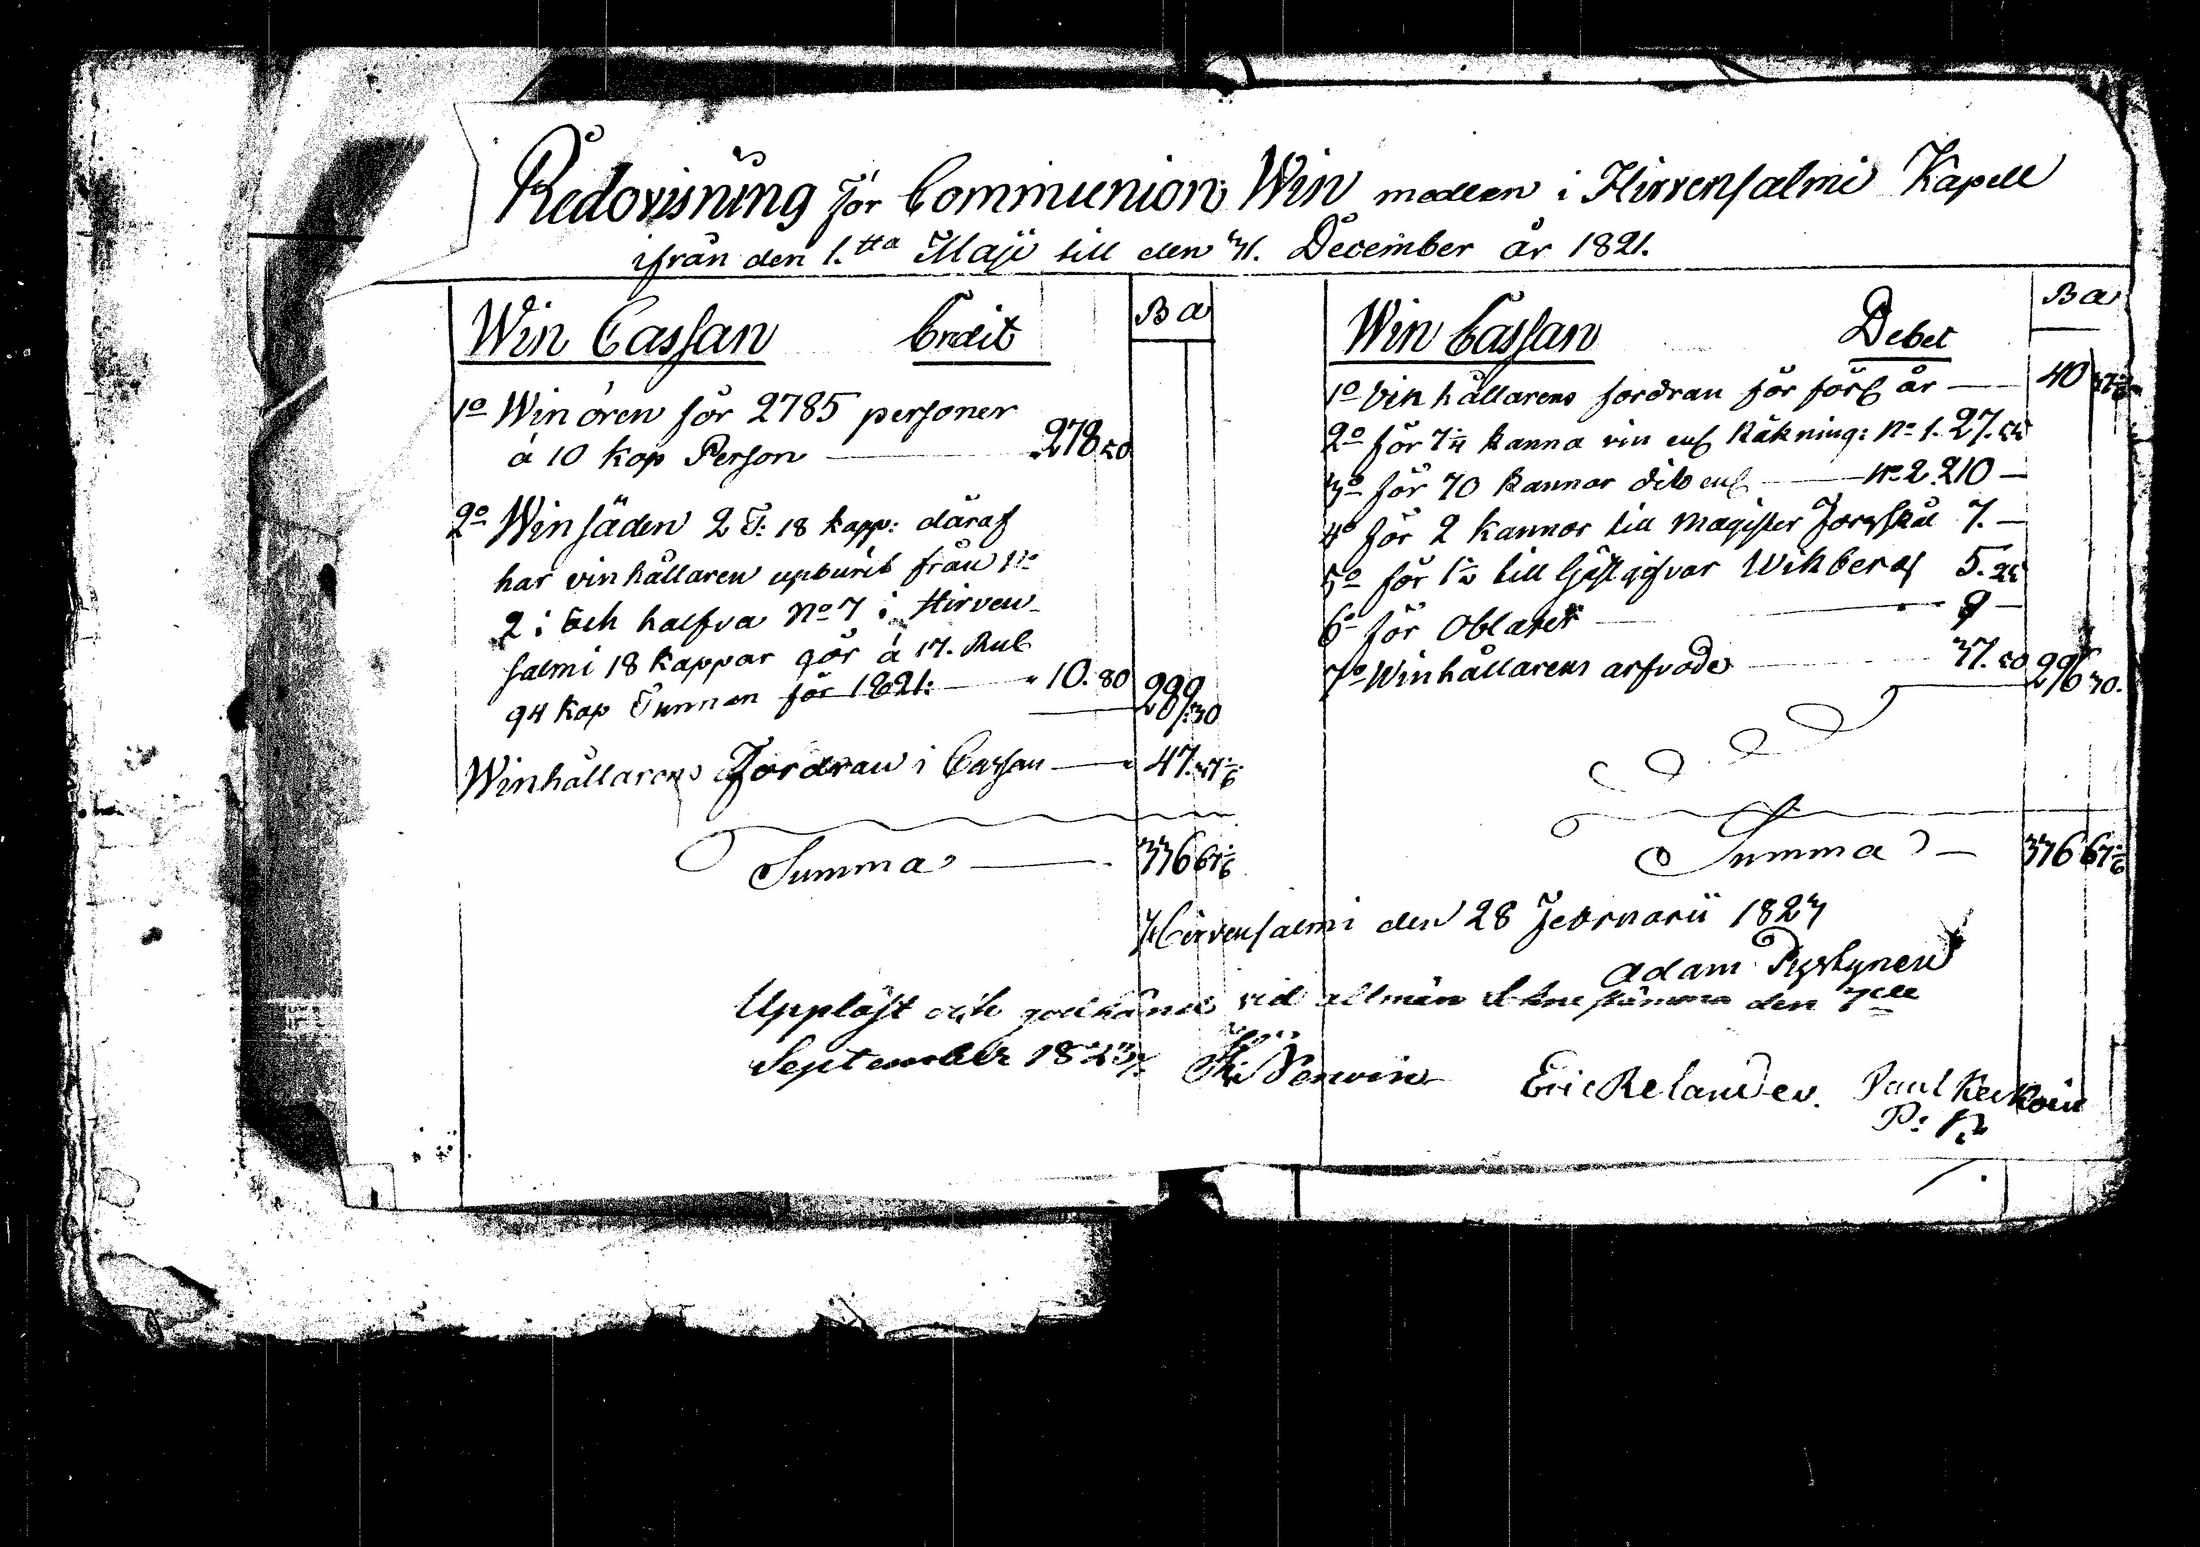 Redovisning för Communion Win medlen i Hirvensalmi Kapell
ifrån den 1.sta Maji till den 31. December år 1821.
Win Cassan Credit B A
1o Winören för 2785 personer
à 10 kop Person 278 50
2o Winsäden 2 T: 18 kapp: däraf
har vinhållaren upburit från No
2 i och halfva No 7 i Hirven-
salmi 18 kappar gör à 17. Rub
94 kop Tunnan för 1821: 10. 80 289. 30
Winhållarens Fordran i Cassan 47. 37 1/6
Summa 336 67 1/6
Win Cassan Debet B A
1o Vinhållarens fordran för förfl år 40 37 1/6
2o för 7 1/4 kanna vin enl Räkning: No 1. 27. 55
3o för 70 kannor dito enl No 2 210 —
4o för 2 kannor till Magister Forsskål 7. —
5o för 1 1/2 till Gästgifvar Wikberg 5. 25
6o för Oblater 9 —
7o Winhållarens arfvode 37. 50 296 30.
Summa 336 67 1/6
Hirvensalmi den 28 Februarii 1823
Adam Pystynen
Uppläst och godkänd vid allmän Sockne stämma den 7de
September 1823.
Eric Relander. Paul Kerkoin